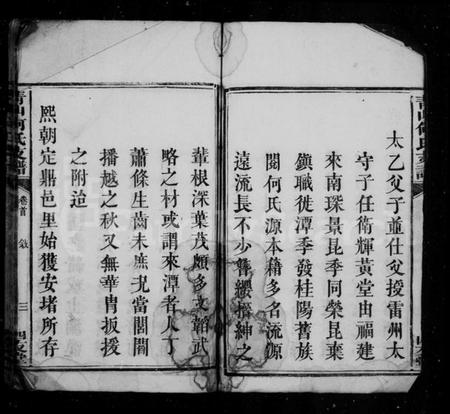 太乙父子並仕父援雷州太
守子任衛輝黃堂由福建
來南琛景昆季同榮昆棄
鎮職徙潭季發桂陽舊族
閱何氏源本藉多名流源
遠流長不少簪纓搢紳之
輩根深葉茂頗多文韜武
略之材或謂來潭者人丁
蕭條生齒未庶尤當闖闖
播越之秋又無華冑扳援
之附迨
熙朝定鼎邑里始獲安堵所存
青山何氏支譜
卷首
敘
三